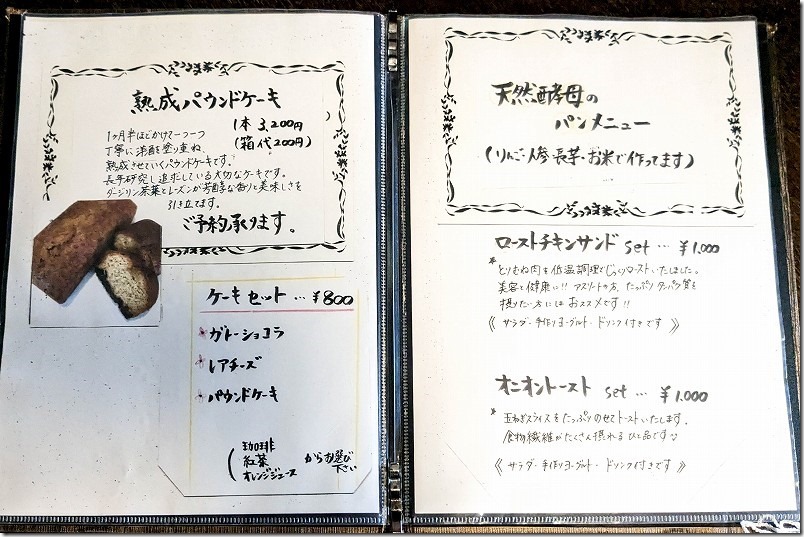 熟成パウンドケーキ
1本 3,200円
(箱代200円)
1ヶ月半ほどかけて一つ一つ
丁寧に洋酒を塗り重ね、
熟成させていくパウンドケーキです。
長年研究し追求している大切なケーキです。
ダージリン茶葉とレーズンが芳醇な香りと美味しさを
引き立てます。
ご予約承ります。
ケーキセット…¥800
ガトーショコラ
レアチーズ
パウンドケーキ
(珈琲
紅茶 からお選び
オレンジジュース 下さい
天然酵母の
パンメニュー
(りんご・人参・長芋・お米で作ってます)
ローストチキンサンド set … ¥1.000
* とりもね肉を低温調理でじっくりローストいたしました。
美容と健康に!! アスリートの方、たっぷりタンパク質を
摂りたい方には おススメです!!
《 サラダ・手作りヨーグルト・ドリンク付きです 》
オニオントースト set … ¥1.000
* 玉ねぎスライスをたっぷりのせてトーストいたします。
食物繊維がたくさん摂れる ひと品です
《 サラダ・手作りヨーグルト・ドリンク付きです 》